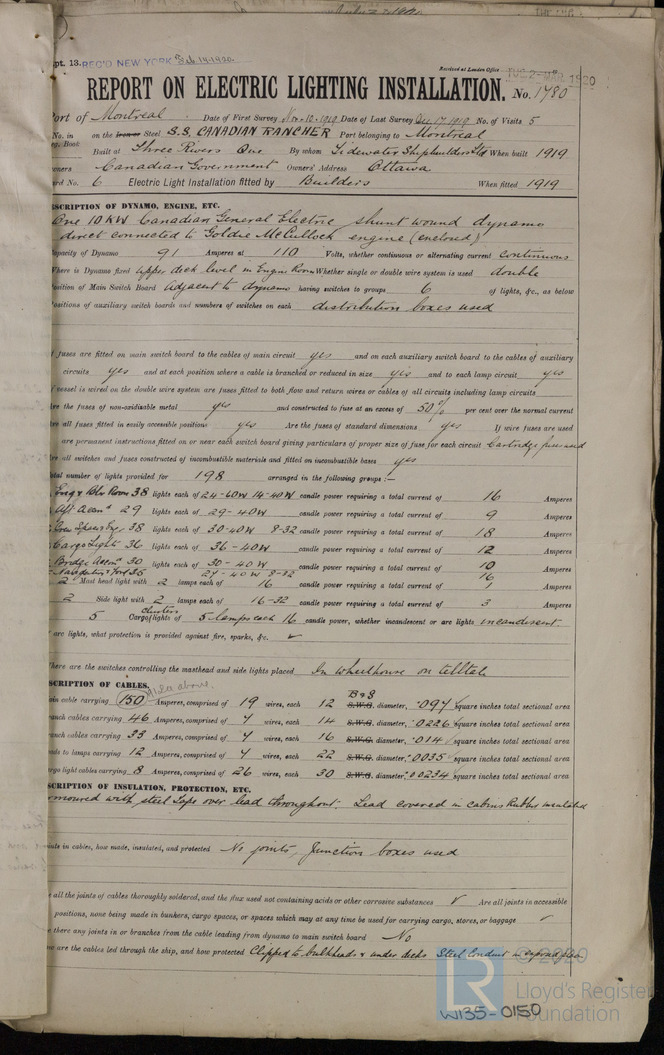 pt. 13. REC'D NEW YORK Feb 14 1920
Received at London Office
TUE. 2 - MAR. 1920
REPORT ON ELECTRIC LIGHTING INSTALLATION. No. 1780
ort of Montreal Date of First Survey Nov. 10. 1919 Date of Last Survey Dec. 17 1919 No. of Visits 5
No. in on the Iron or Steel S.S. CANADIAN RANCHER Port belonging to Montreal
eg. Book: Built at Three Rivers Que By whom Tidewater Shipbuilders Ltd When built 1919
wners Canadian Government Owners' Address Ottawa
ard No. 6 Electric Light Installation fitted by Builders When fitted 1919
SCRIPTION OF DYNAMO, ENGINE, ETC.
One 10 KW Canadian General Electric shunt wound dynamo
direct connected to Goldie McCulloch engine (enclosed)
apacity of Dynamo 91 Amperes at 110 Volts, whether continuous or alternating current continuous
Where is Dynamo fixed upper deck level in Engine Room Whether single or double wire system is used double
osition of Main Switch Board adjacent to dynamo having switches to groups 6 of lights, &c., as below
ositions of auxiliary switch boards and numbers of switches on each distribution boxes used
f fuses are fitted on main switch board to the cables of main circuit yes and on each auxiliary switch board to the cables of auxiliary
circuits yes and at each position where a cable is branched or reduced in size yes and to each lamp circuit yes
f vessel is wired on the double wire system are fuses fitted to both flow and return wires or cables of all circuits including lamp circuits
re the fuses of non-oxidizable metal yes and constructed to fuse at an excess of 50% per cent over the normal current
re all fuses fitted in easily accessible positions yes Are the fuses of standard dimensions yes If wire fuses are used
are permanent instructions fitted on or near each switch board giving particulars of proper size of fuse for each circuit Cartridge fuses used
re all switches and fuses constructed of incombustible materials and fitted on incombustible bases yes
otal number of lights provided for 198 arranged in the following groups:—
Eng & Blr Room 38 lights each of 24-60W 14-40W candle power requiring a total current of 16 Amperes
Aft Accn 29 lights each of 29-40W candle power requiring a total current of 9 Amperes
38 lights each of 30-40W 8-32 candle power requiring a total current of 18 Amperes
Cargo Light 36 lights each of 36-40W candle power requiring a total current of 12 Amperes
Bridge Accn 30 lights each of 30-40W candle power requiring a total current of 10 Amperes
16
2 Mast head light with 2 lamps each of 16 candle power requiring a total current of 1 Amperes
2 Side light with 2 lamps each of 16-32 candle power requiring a total current of 3 Amperes
5 Cargo Clusters lights of 5 lamps each 16 candle power, whether incandescent or arc lights incandescent
arc lights, what protection is provided against fire, sparks, &c. ✓
here are the switches controlling the masthead and side lights placed In wheelhouse on telltale
SCRIPTION OF CABLES.
in cable carrying 150 Amperes, comprised of 19 wires, each 12 B&S S.W.G. diameter, .097 square inches total sectional area
anch cables carrying 46 Amperes, comprised of 7 wires, each 14 S.W.G. diameter, .0226 square inches total sectional area
anch cables carrying 33 Amperes, comprised of 7 wires, each 16 S.W.G. diameter, .014 square inches total sectional area
ads to lamps carrying 12 Amperes, comprised of 7 wires, each 22 S.W.G. diameter, .0035 square inches total sectional area
rgo light cables carrying 8 Amperes, comprised of 26 wires, each 30 S.W.G. diameter, .00234 square inches total sectional area
SCRIPTION OF INSULATION, PROTECTION, ETC.
rmoured with steel tape over lead throughout. Lead covered in cabins Rubber insulated
ints in cables, how made, insulated, and protected No joints, Junction boxes used
e all the joints of cables thoroughly soldered, and the flux used not containing acids or other corrosive substances ✓ Are all joints in accessible
positions, none being made in bunkers, cargo spaces, or spaces which may at any time be used for carrying cargo, stores, or baggage ✓
e there any joints in or branches from the cable leading from dynamo to main switch board No
ow are the cables led through the ship, and how protected Clipped to bulkheads & under decks Steel conduit in exposed places
© 2020
LR
Lloyd's Register
Foundation
W135-0150